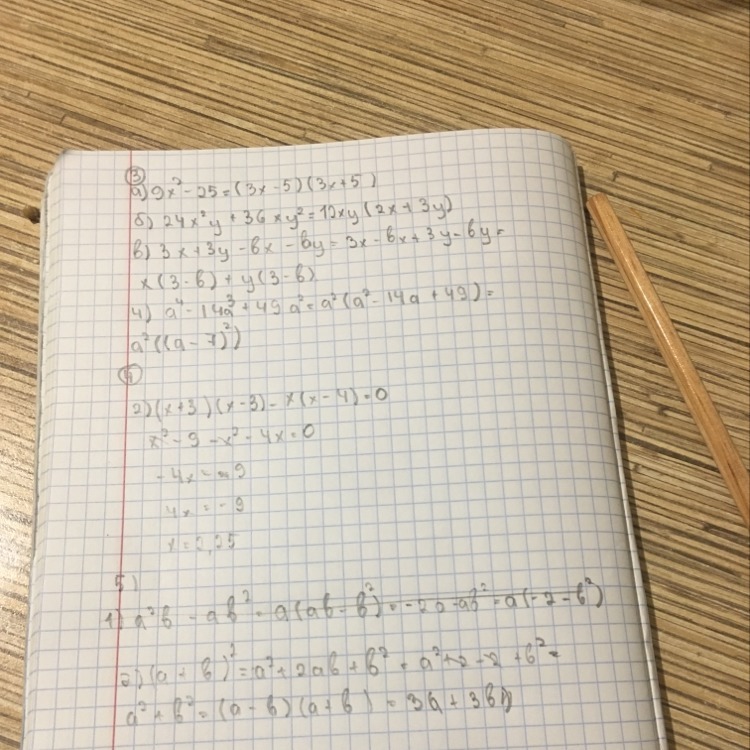 ③
а) 9x² - 25 = (3x - 5)(3x + 5)
б) 24x²y + 36xy² = 12xy(2x + 3y)
в) 3x + 3y - bx - by = 3x - bx + 3y - by =
x(3 - b) + y(3 - b)
4) a⁴ - 14a³ + 49a² = a²(a² - 14a + 49) =
a²((a - 7)²)
④
2) (x + 3)(x - 3) - x(x - 4) = 0
x² - 9 - x² - 4x = 0
-4x = -9
4x = -9
x = 2,25
5)
1) a²b - ab² = a(ab - b²) = -2a - ab² = a(-2 - b²)
2) (a + b)² = a² + 2ab + b² = a² + 2 - 2 + b² =
a² + b² = (a - b)(a + b) = 3a + 3b